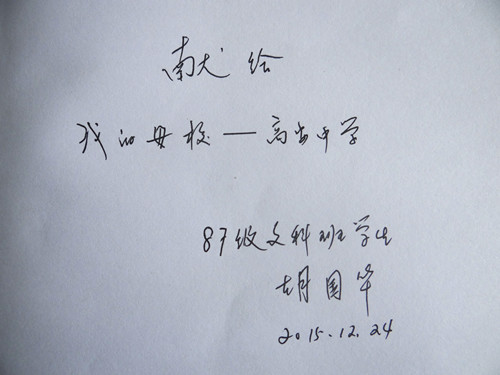 献绘
我的母校一高安中学
87级文科班学生
胡国华
2015.12.24